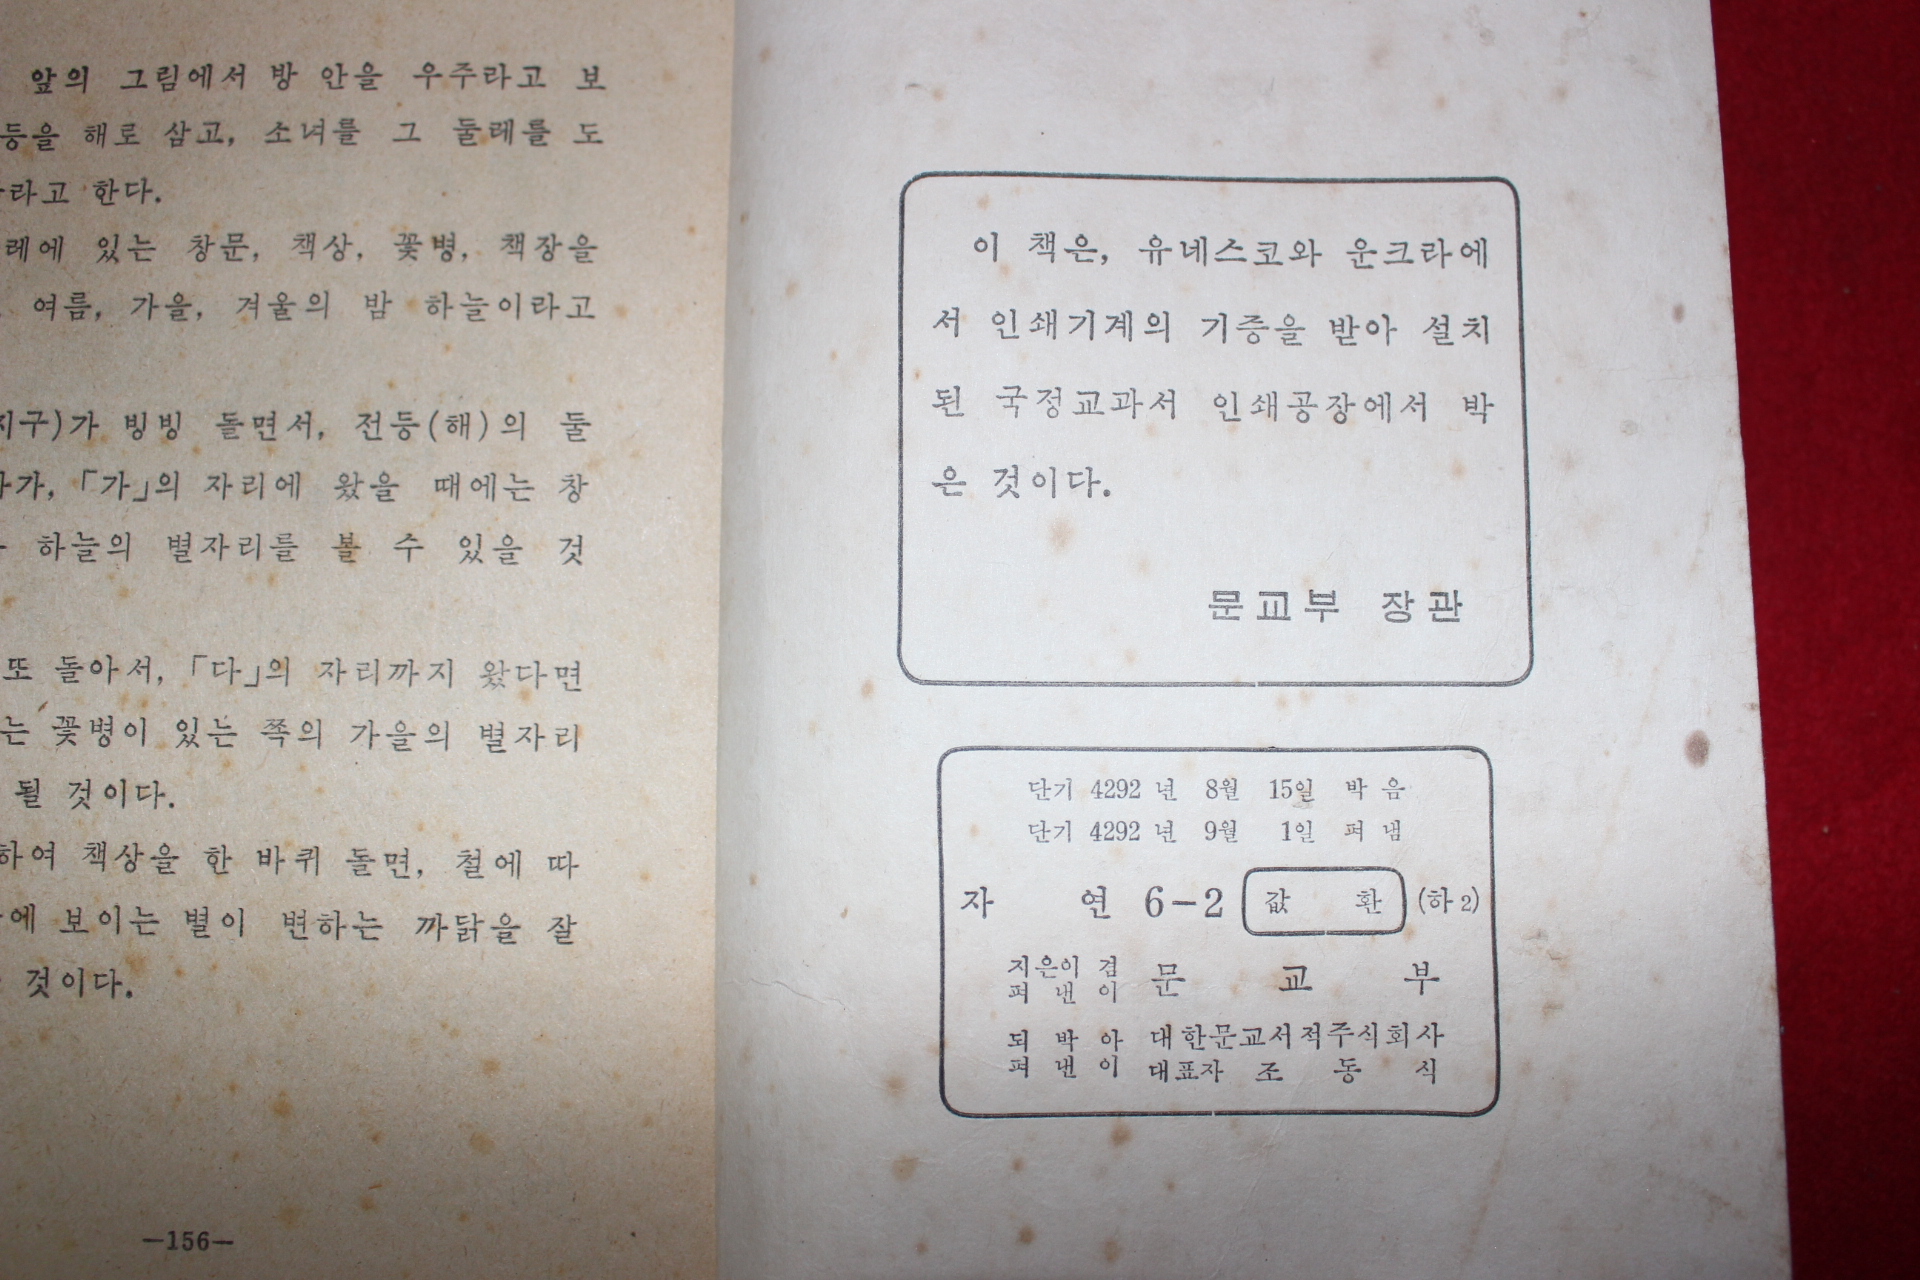 앞의 그림에서 방 안을 우주라고 보
등을 해로 삼고, 소녀를 그 둘레를 도
라고 한다.
레에 있는 창문, 책상, 꽃병, 책장을
여름, 가을, 겨울의 밤 하늘이라고
지구)가 빙빙 돌면서, 전등(해)의 둘
가, 「가」의 자리에 왔을 때에는 창
하늘의 별자리를 볼 수 있을 것
또 돌아서, 「다」의 자리까지 왔다면
는 꽃병이 있는 쪽의 가을의 별자리
될 것이다.
하여 책상을 한 바퀴 돌면, 철에 따
에 보이는 별이 변하는 까닭을 잘
것이다.
—156—
이 책은, 유네스코와 운크라에
서 인쇄기계의 기증을 받아 설치
된 국정교과서 인쇄공장에서 박
은 것이다.
문교부 장관
단기 4292 년 8월 15일 박음
단기 4292 년 9월 1일 펴냄
자 연 6-2 값 환 (하2)
지은이 겸
펴 낸 이 문 교 부
되 박 아 대한문교서적주식회사
펴 낸 이 대표자 조 동 식